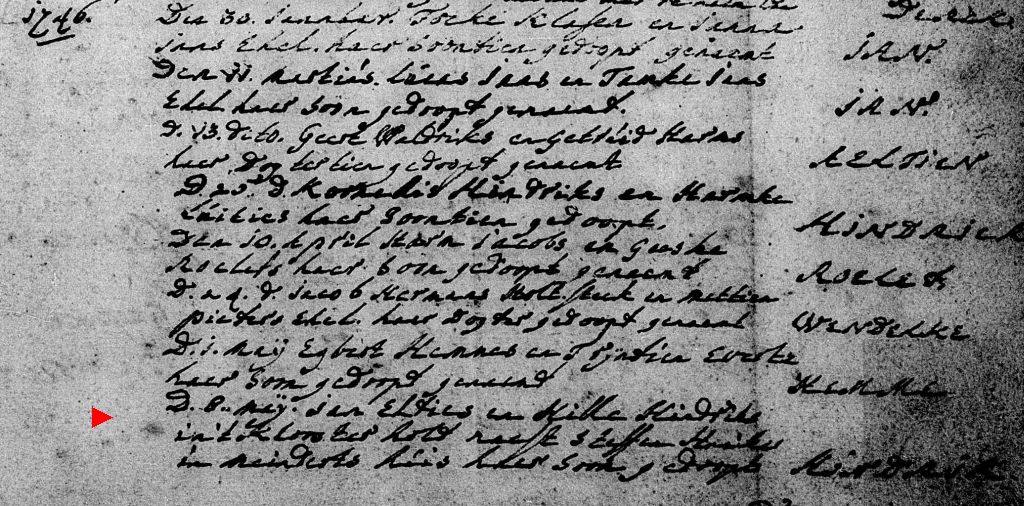 1746.
Den 30. Januar. Focke Klasen en Janna
Jans Ehel. haer Soontien gedoopt genaemt JAN.
Den 11. Martius. Lucas Jans en Temke Jans
Ehel haer Soon gedoopt genaemt. JAN.
D. 13. dito. Geert Hendriks en Gebruid Harms
haer Dogtertien gedoopt genaemt AELTIEN.
D. 25. d Kornelis Hindriks en Harmke
Luities haer Soontien gedoopt. HINDRICK
Den 10. April Harm Jacobs en Geeske
Roelefs haer Soon gedoopt genaemt ROELEF
D. 24. d. Jacob Hermans en Mettien
Pieters Ehel. haer dogter gedoopt genaemt WENDELKE
D. 1. Maÿ Egbert Hemmes en Trÿntien Everts
haer Soon gedoopt genaemt HEMME
D. 8. Maÿ. Jan Elties en Hille Hindriks
in't Klooster holt naest Steffen
in Meinderts huis haer Soon gedoopt HINDRIK